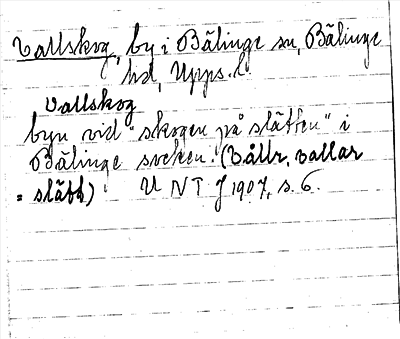 Vallskog, by i Bälinge sn, Bälinge
hd, Upps. l.
Vallskog
byn vid "skogen på slätten" i
Bälinge socken. (vållr, vallar
= slätt) U N T J 1907, s. 6.